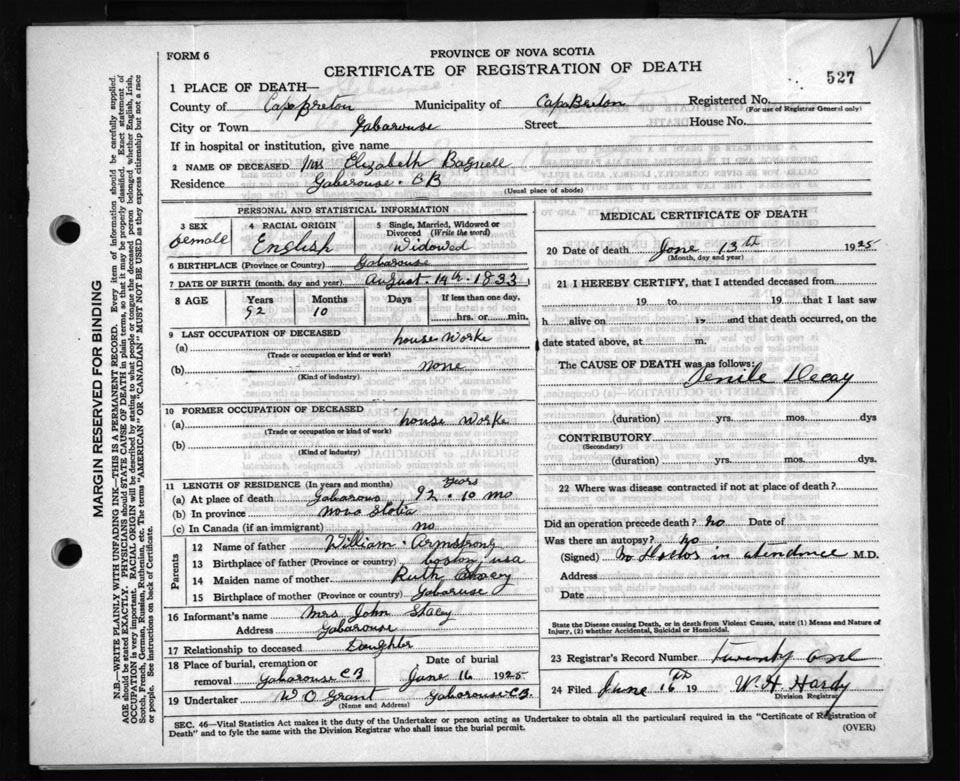 FORM 6
PROVINCE OF NOVA SCOTIA
CERTIFICATE OF REGISTRATION OF DEATH
527
1 PLACE OF DEATH—
County of Cape Breton Municipality of Cape Breton Registered No.
(For use of Registrar General only)
City or Town Gabarouse Street House No.
If in hospital or institution, give name
2 NAME OF DECEASED Mrs Elizabeth Bagnell
Residence Gabarouse. CB
(Usual place of abode)
MARGIN RESERVED FOR BINDING
N.B.—WRITE PLAINLY WITH UNFADING INK—THIS IS A PERMANENT RECORD. Every item of information should be carefully supplied.
AGE should be stated EXACTLY. PHYSICIANS should STATE CAUSE OF DEATH in plain terms, so that it may be properly classified. Exact statement of
OCCUPATION is very important. RACIAL ORIGIN will be described by stating to what people or tongue the deceased person belonged, whether English, Irish,
Scotch, French, German, Russian, Ruthenian, etc. The terms "AMERICAN" OR "CANADIAN" MUST NOT BE USED as they express citizenship but not a race
or people. See instructions on back of Certificate.
PERSONAL AND STATISTICAL INFORMATION
3 SEX
female
4 RACIAL ORIGIN
English
5 Single, Married, Widowed or
Divorced (Write the word)
Widowed
6 BIRTHPLACE (Province or Country) Gabarouse
7 DATE OF BIRTH (month, day and year) August. 14th. 1833
8 AGE Years Months Days If less than one day,
92 10 hrs. or min.
9 LAST OCCUPATION OF DECEASED
(a) house Worke
(Trade or occupation or kind or work)
(b) none
(Kind of industry)
10 FORMER OCCUPATION OF DECEASED
(a) house Worke
(Trade or occupation or kind of work)
(b)
(Kind of industry)
11 LENGTH OF RESIDENCE (In years and months) years
(a) At place of death 92. 10 mo
(b) In province Nova Scotia
(c) In Canada (if an immigrant) no
Parents
12 Name of father William. Armstrong
13 Birthplace of father (Province or country) boston, usa
14 Maiden name of mother Ruth Stacey
15 Birthplace of mother (Province or country) Gabaruse
16 Informant's name Mrs John Stacey
Address Gabarouse
17 Relationship to deceased Daughter
18 Place of burial, cremation or
removal Gabarouse CB
Date of burial
June 16 1925
19 Undertaker W O Grant Gabarouse C.B.
(Name and Address)
MEDICAL CERTIFICATE OF DEATH
20 Date of death June 13th 1925
(Month, day and year)
21 I HEREBY CERTIFY, that I attended deceased from
19 to 19 that I last saw
h alive on 19 and that death occurred, on the
date stated above, at m.
The CAUSE OF DEATH was as follows:
Senile Decay
(duration) yrs. mos. dys
CONTRIBUTORY
(Secondary)
(duration) yrs. mos. dys.
22 Where was disease contracted if not at place of death?
Did an operation precede death? no Date of
Was there an autopsy? no
(Signed) no Doctor in atendance M.D.
Address
Date
State the Disease causing Death, or in death from Violent Causes, state (1) Means and Nature of
Injury, (2) whether Accidental, Suicidal or Homicidal.
23 Registrar's Record Number twenty one
24 Filed June 16th 19 W H Hardy
Division Registrar
SEC. 46—Vital Statistics Act makes it the duty of the Undertaker or person acting as Undertaker to obtain all the particulars required in the "Certificate of Registration of
Death" and to fyle the same with the Division Registrar who shall issue the burial permit. (OVER)